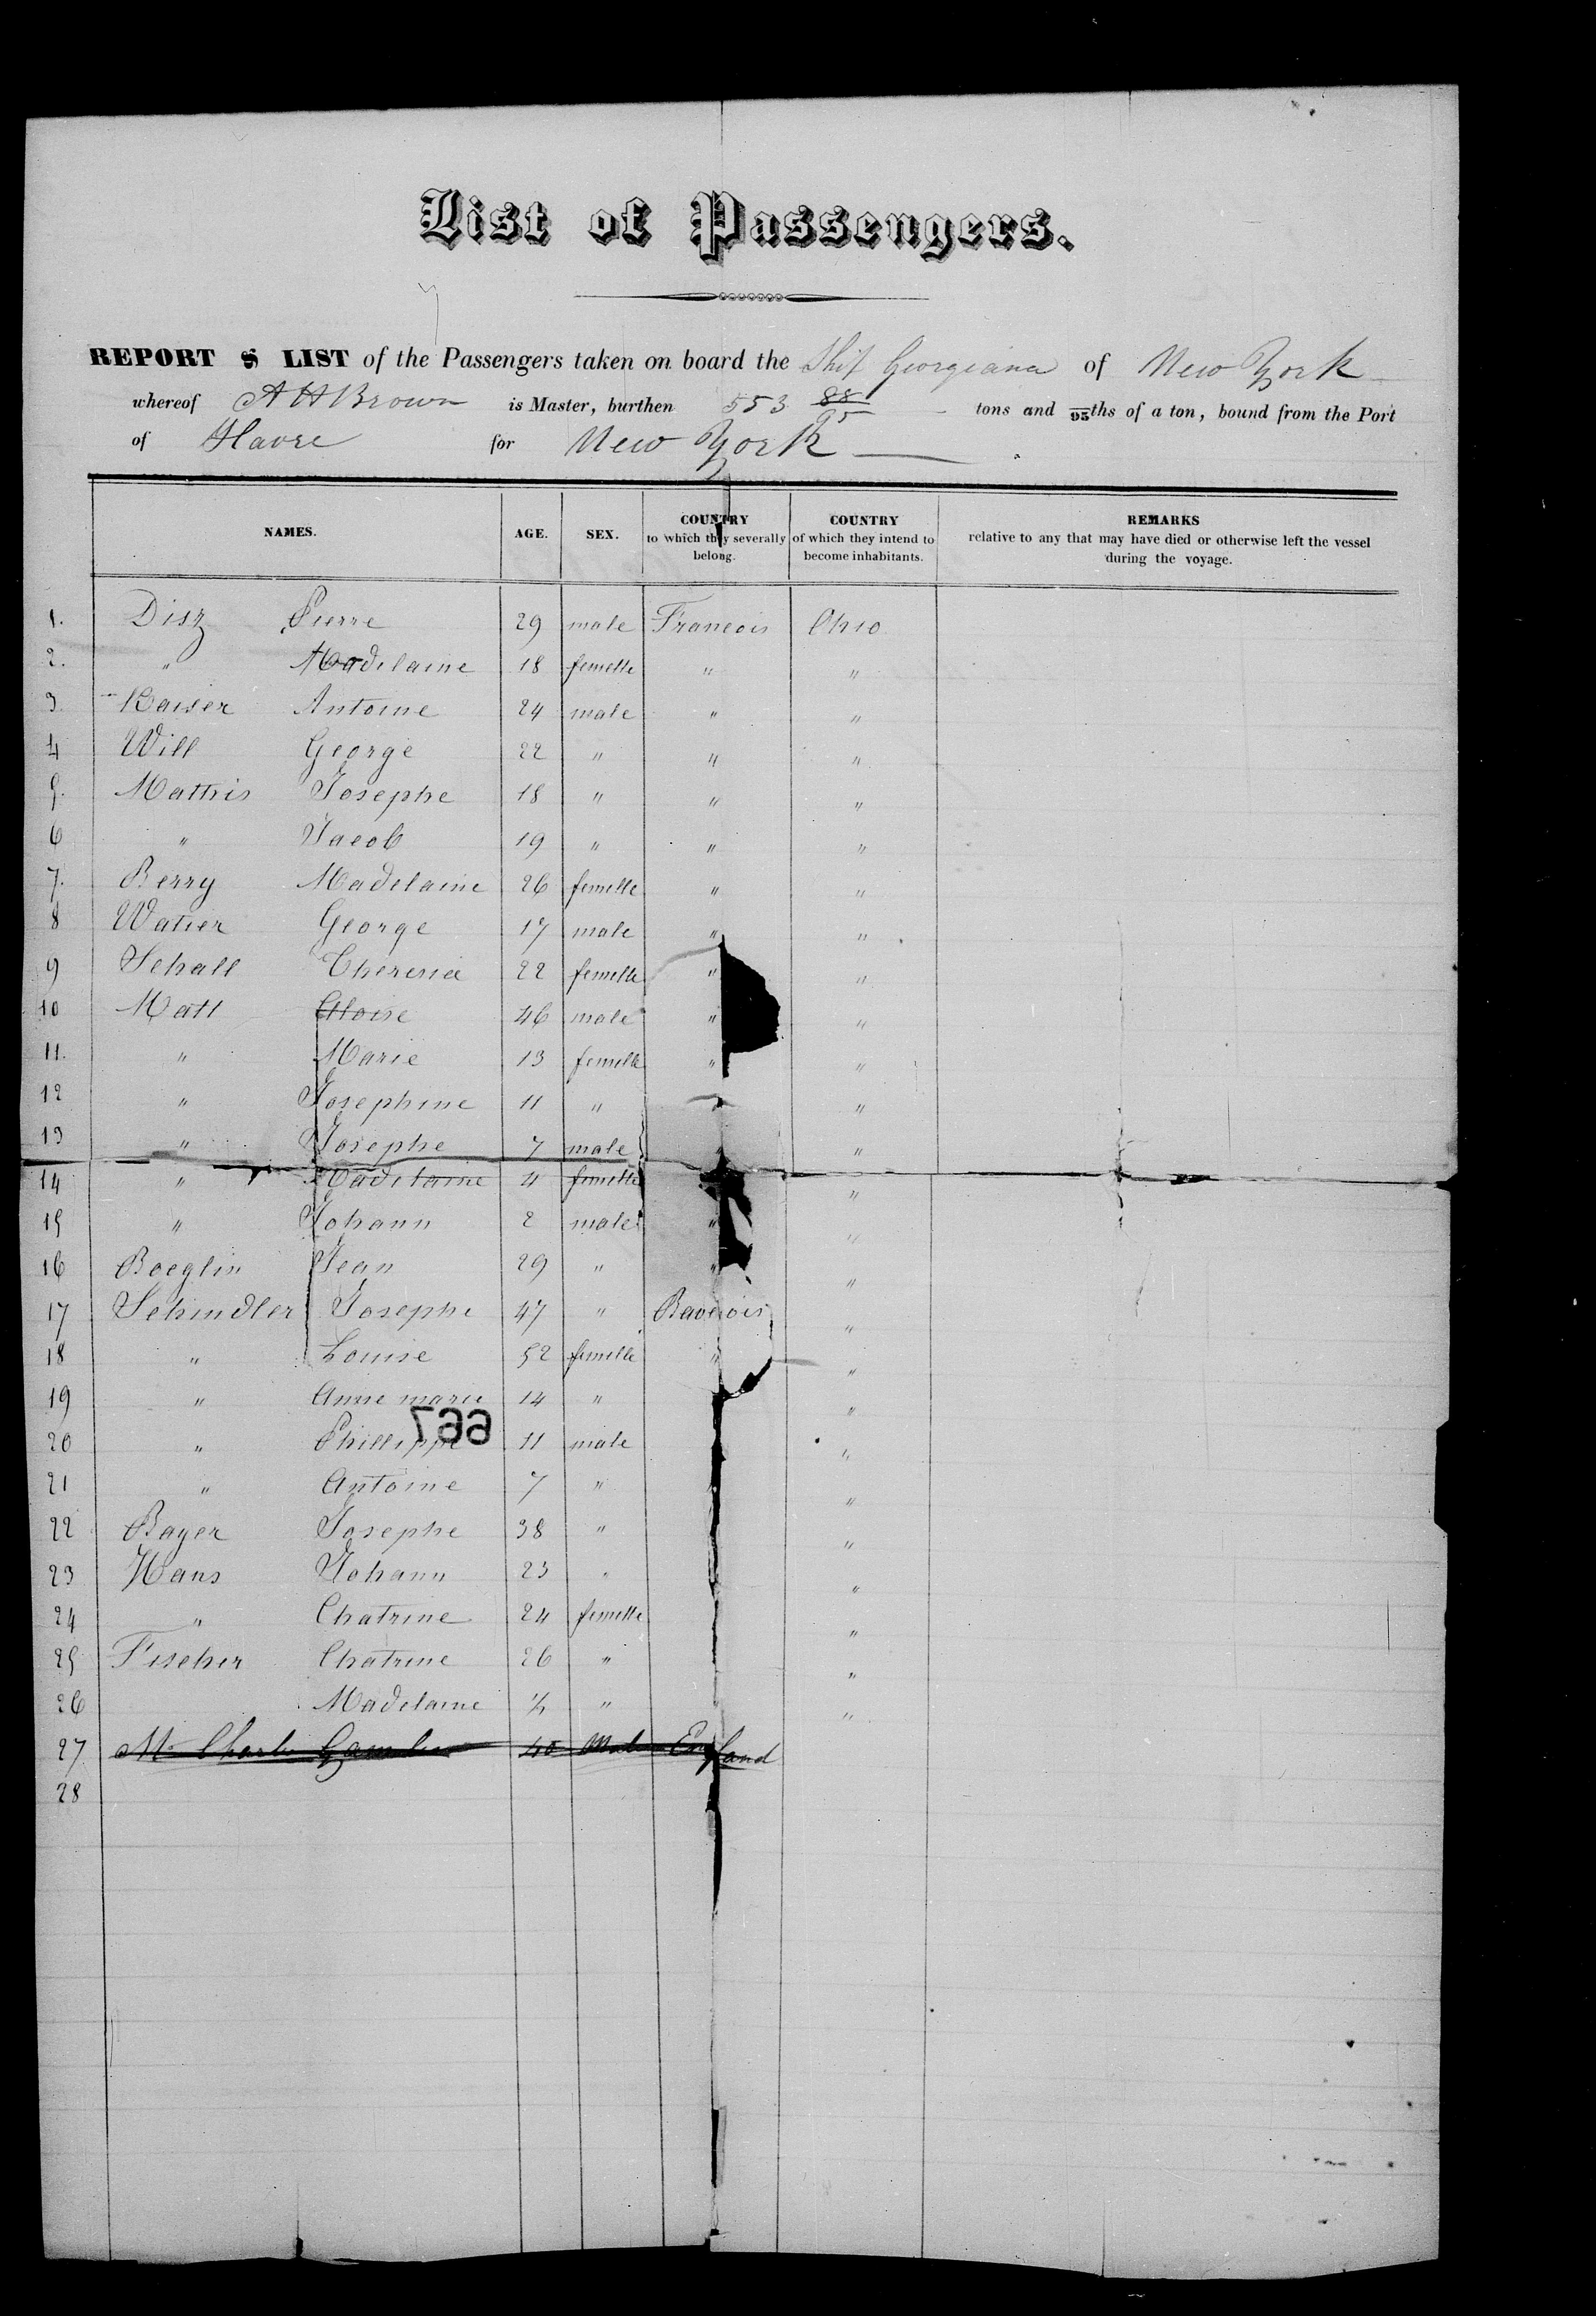 List of Passengers.
REPORT & LIST of the Passengers taken on board the Ship Georgiana of New York
whereof A H Brown is Master, burthen 553 88/95 tons and 95ths of a ton, bound from the Port
of Havre for New York
NAMES. AGE. SEX. COUNTRY to which they severally belong. COUNTRY of which they intend to become inhabitants. REMARKS relative to any that may have died or otherwise left the vessel during the voyage.
1. Disz Pierre 29 male Francois Ohio
2. " Madelaine 18 femelle " "
3 Kaiser Antoine 24 male " "
4 Will George 22 " " "
5. Mathis Josephe 18 " " "
6 " Jacob 19 " " "
7. Berry Madelaine 26 femelle " "
8 Watier George 17 male " "
9 Schall Theresia 22 femelle " "
10 Matt Aloise 46 male " "
11. " Marie 13 femelle " "
12 " Josephine 11 " "
13 " Josephe 7 male "
14 " Madelaine 4 femelle "
15 " Johann 2 male " "
16 Boeglin Jean 29 " " "
17 Schindler Josephe 47 " Bavarois "
18 " Louise 52 femelle " "
19 " Anne marie 14 " "
20 " Phillippe 11 male "
667
21 " Antoine 7 " "
22 Bayer Josephe 38 " "
23 Hans Johann 23 " "
24 " Chatrine 24 femelle "
25 Fischer Chatrine 26 " "
26 Madelaine ½ " "
27 Mr Charles 40 Male England
28